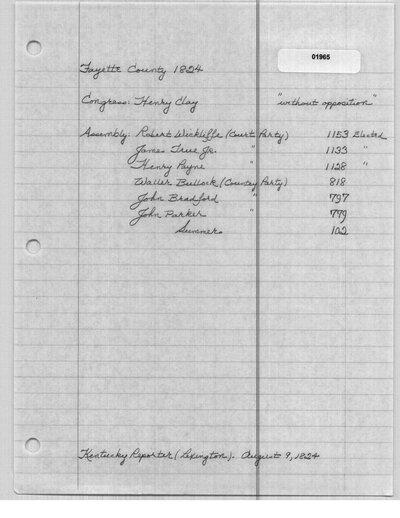 01965
Fayette County 1824
Congress: Henry Clay "without opposition"
Assembly: Robert Wickliffe (Court Party) 1153 Elected
James True Jr. " 1133 "
Henry Payne " 1128 "
Waller Bullock (Country Party) 818
John Bradford " 797
John Parker " 779
Summers 102
Kentucky Reporter (Lexington). August 9, 1824